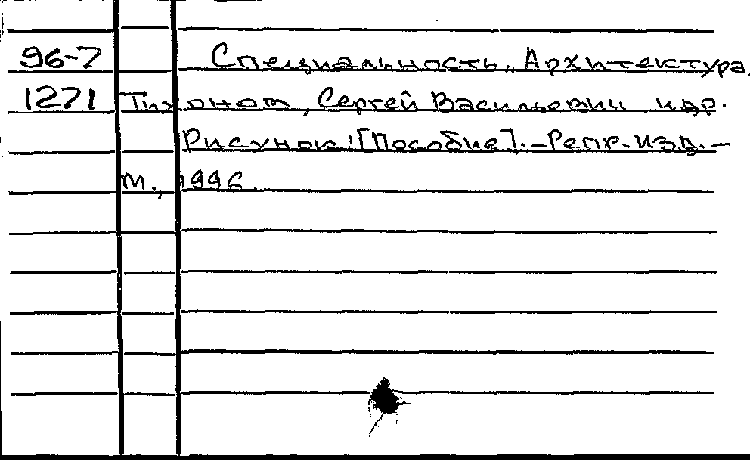 96-7 Специальность. Архитектура.
1271 Тихонов, Сергей Васильевич и др.
Рисунок: [Пособие]. - Репр. изд. -
М., 1996.